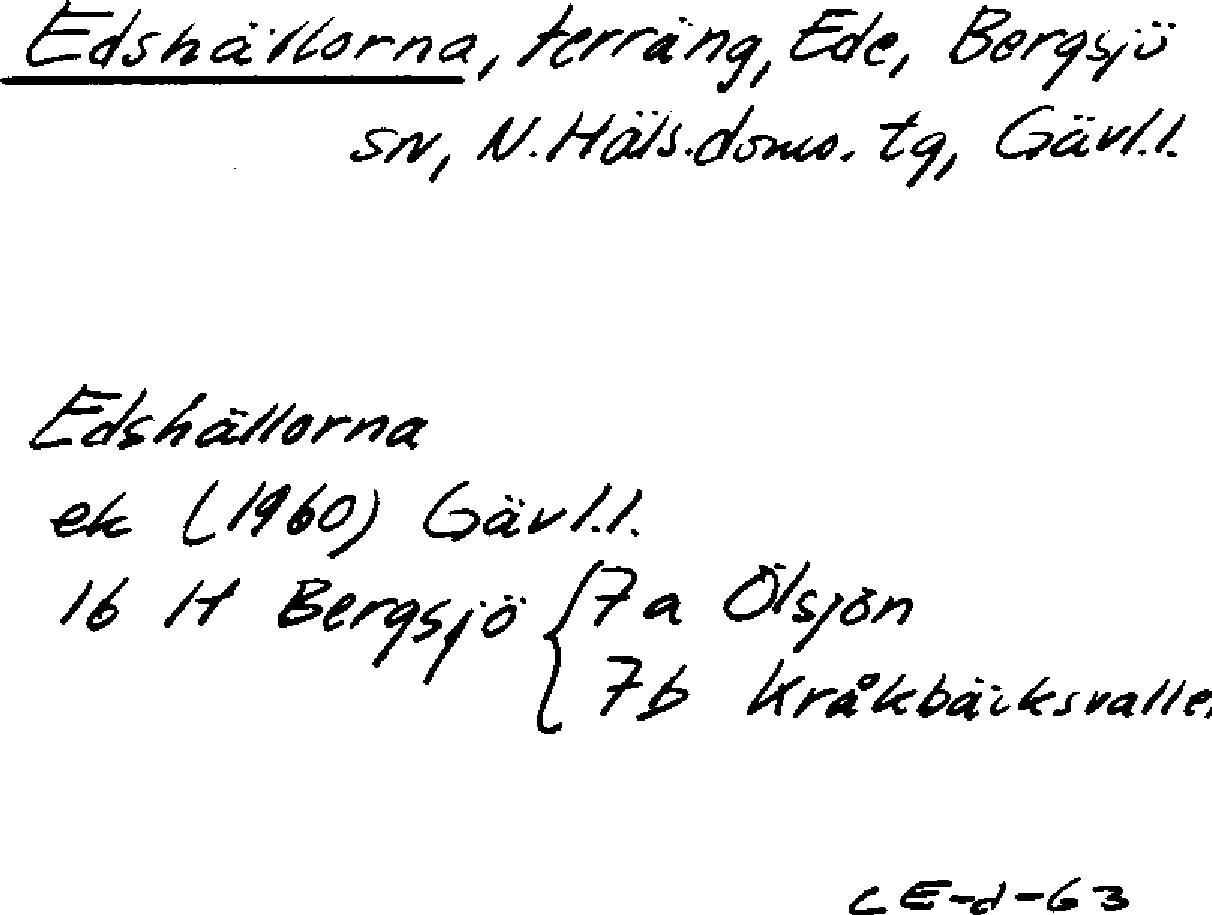 Edshällorna, terräng, Ede, Bergsjö
sn, N. Häls. doms. tg, Gävl.l.
Edshällorna
ek (1960) Gävl.l.
16 H Bergsjö { 7a Ölsjön
7b Kråkbäcksvalle
CE-d-63